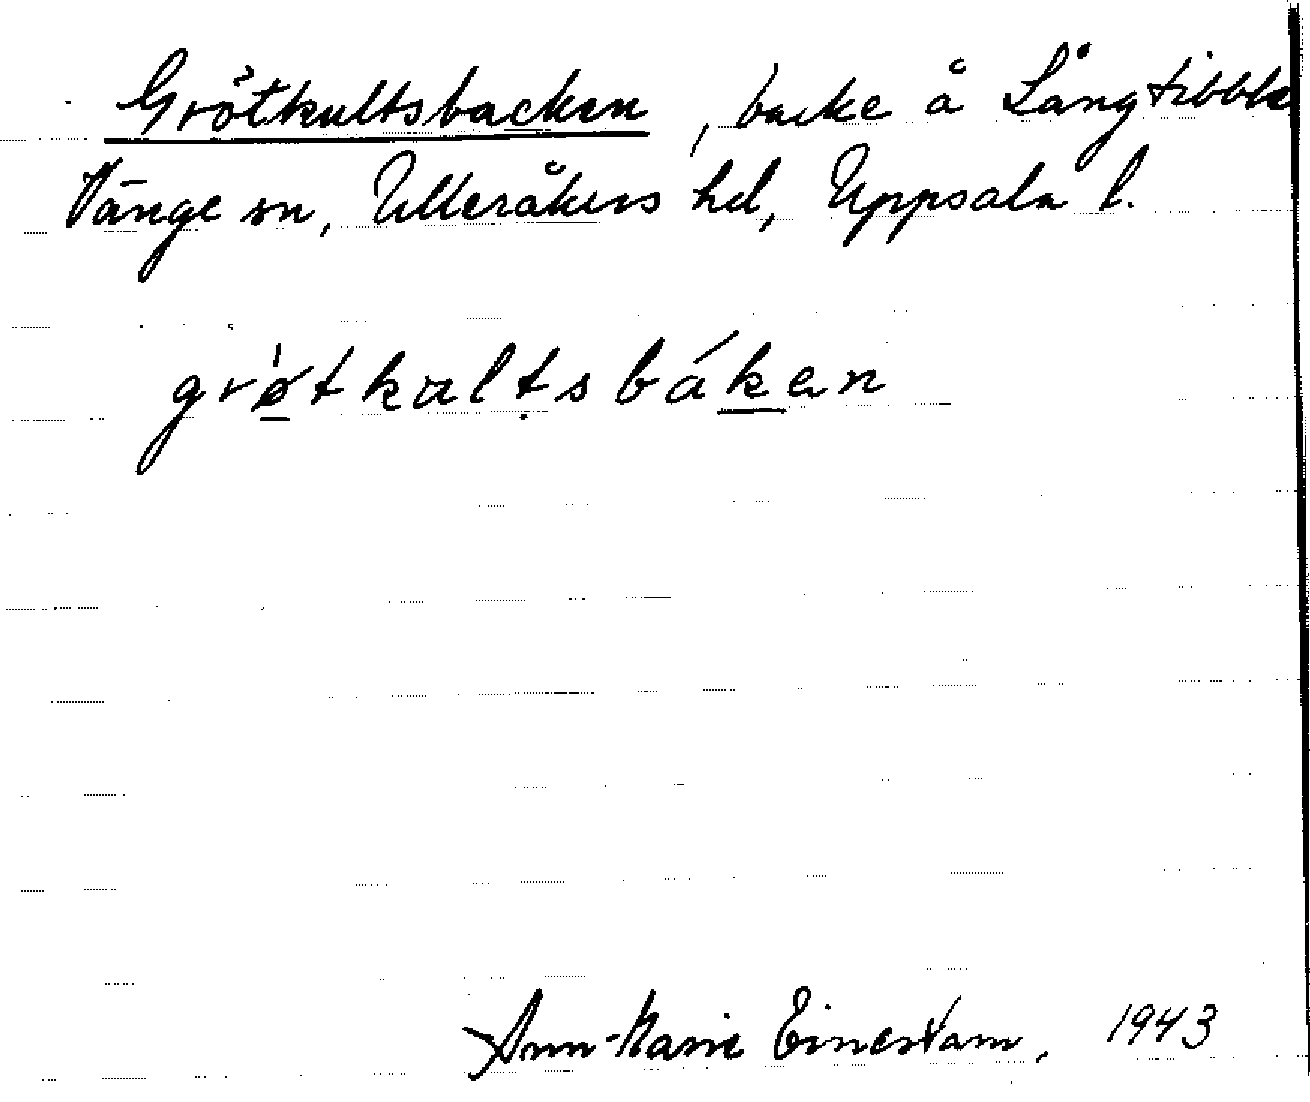 Grötkultsbacken, backe å Långtibble
Vänge sn, Ulleråkers hd, Uppsala l.
grø̀tkultsbáken
Ann-Marie Einerstam, 1943